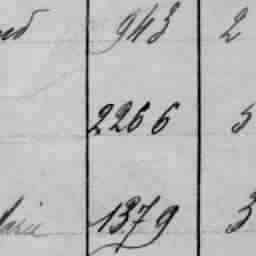 943 2
2266 5
1379 3